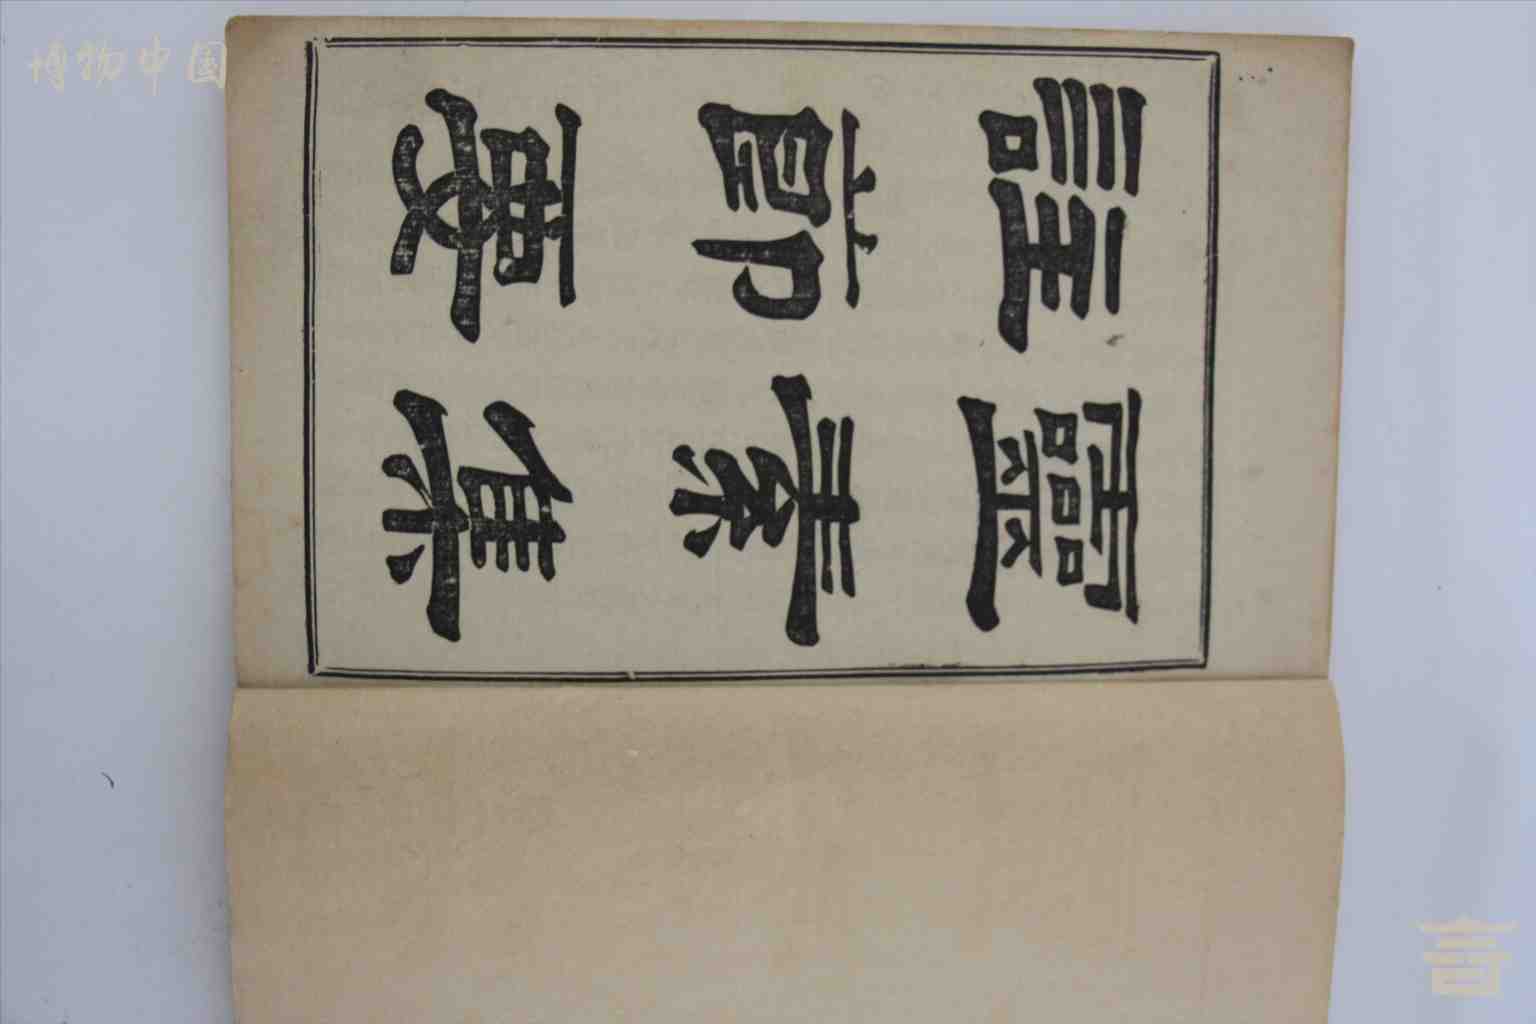 靈素集
註節要
博物中國